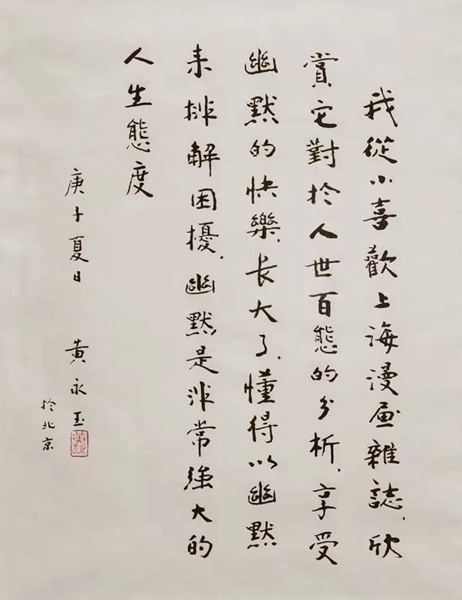 我從小喜歡上海漫画雜誌，欣
賞它對於人世百態的分析，享受
幽默的快樂，長大了，懂得以幽默
来排解困擾，幽默是非常強大的
人生態度
庚子夏日　黄永玉
於北京